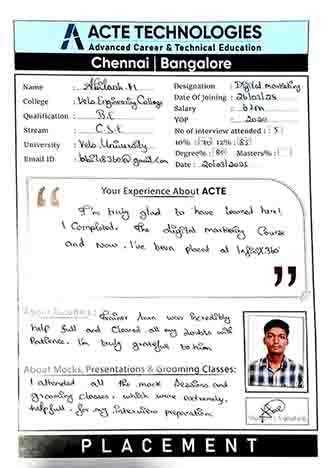 ACTE TECHNOLOGIES
Advanced Career & Technical Education
Chennai | Bangalore
Name :
Designation : Digital marketing
College : Vels Engineering College
Date Of Joining : 26/03/25
Qualification : B.E
Salary :
Stream : C.S.E
YOP : 2020
University : Vels University
No of interview attended : : 5
Email ID :
10% : 70 12% : 85
Degree% : 80 Masters% :
Date : 20/03/2025
Your Experience About ACTE
I'm truly glad to have learned here!
I Completed the digital marketing Course
and now I've been placed at
About
Trainer was incredibly
help full and Cleared all my doubts with
Patience. I'm truly grateful to him
About Mocks, Presentations & Grooming Classes:
I attended all the mock sessions and
grooming classes, which were extremely
helpfull for my interview preparation
PLACEMENT